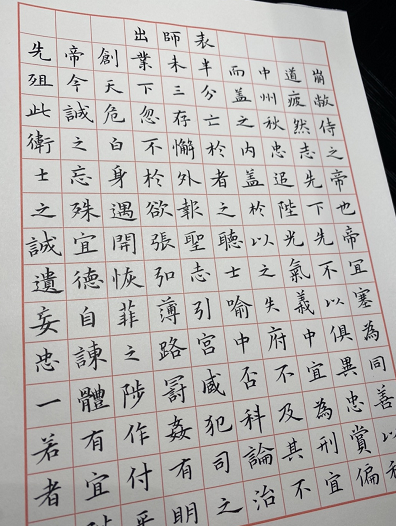 出師表
先帝創業未半而中道崩
殂今天下三分盖州疲敝
此誠危忽存亡之秋然侍
衛之白不懈於内忠志之
士忘身於外者盖追先帝
之殊遇欲報之於陛下也
誠宜開張聖聽以光先帝
遺德恢弘志士之氣不宜
妄自菲薄引喻失義以塞
忠諫之路宮中府中俱為
一體陟罰臧否不宜異同
若有作姦犯科及為忠善
者宜付有司論其刑賞以
明之治不宜偏